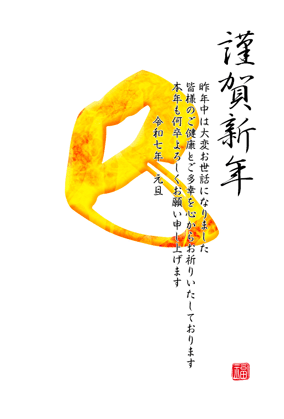 謹賀新年
昨年中は大変お世話になりました
皆様のご健康とご多幸を心からお祈りいたしております
本年も何卒よろしくお願い申し上げます
令和七年　元旦
福